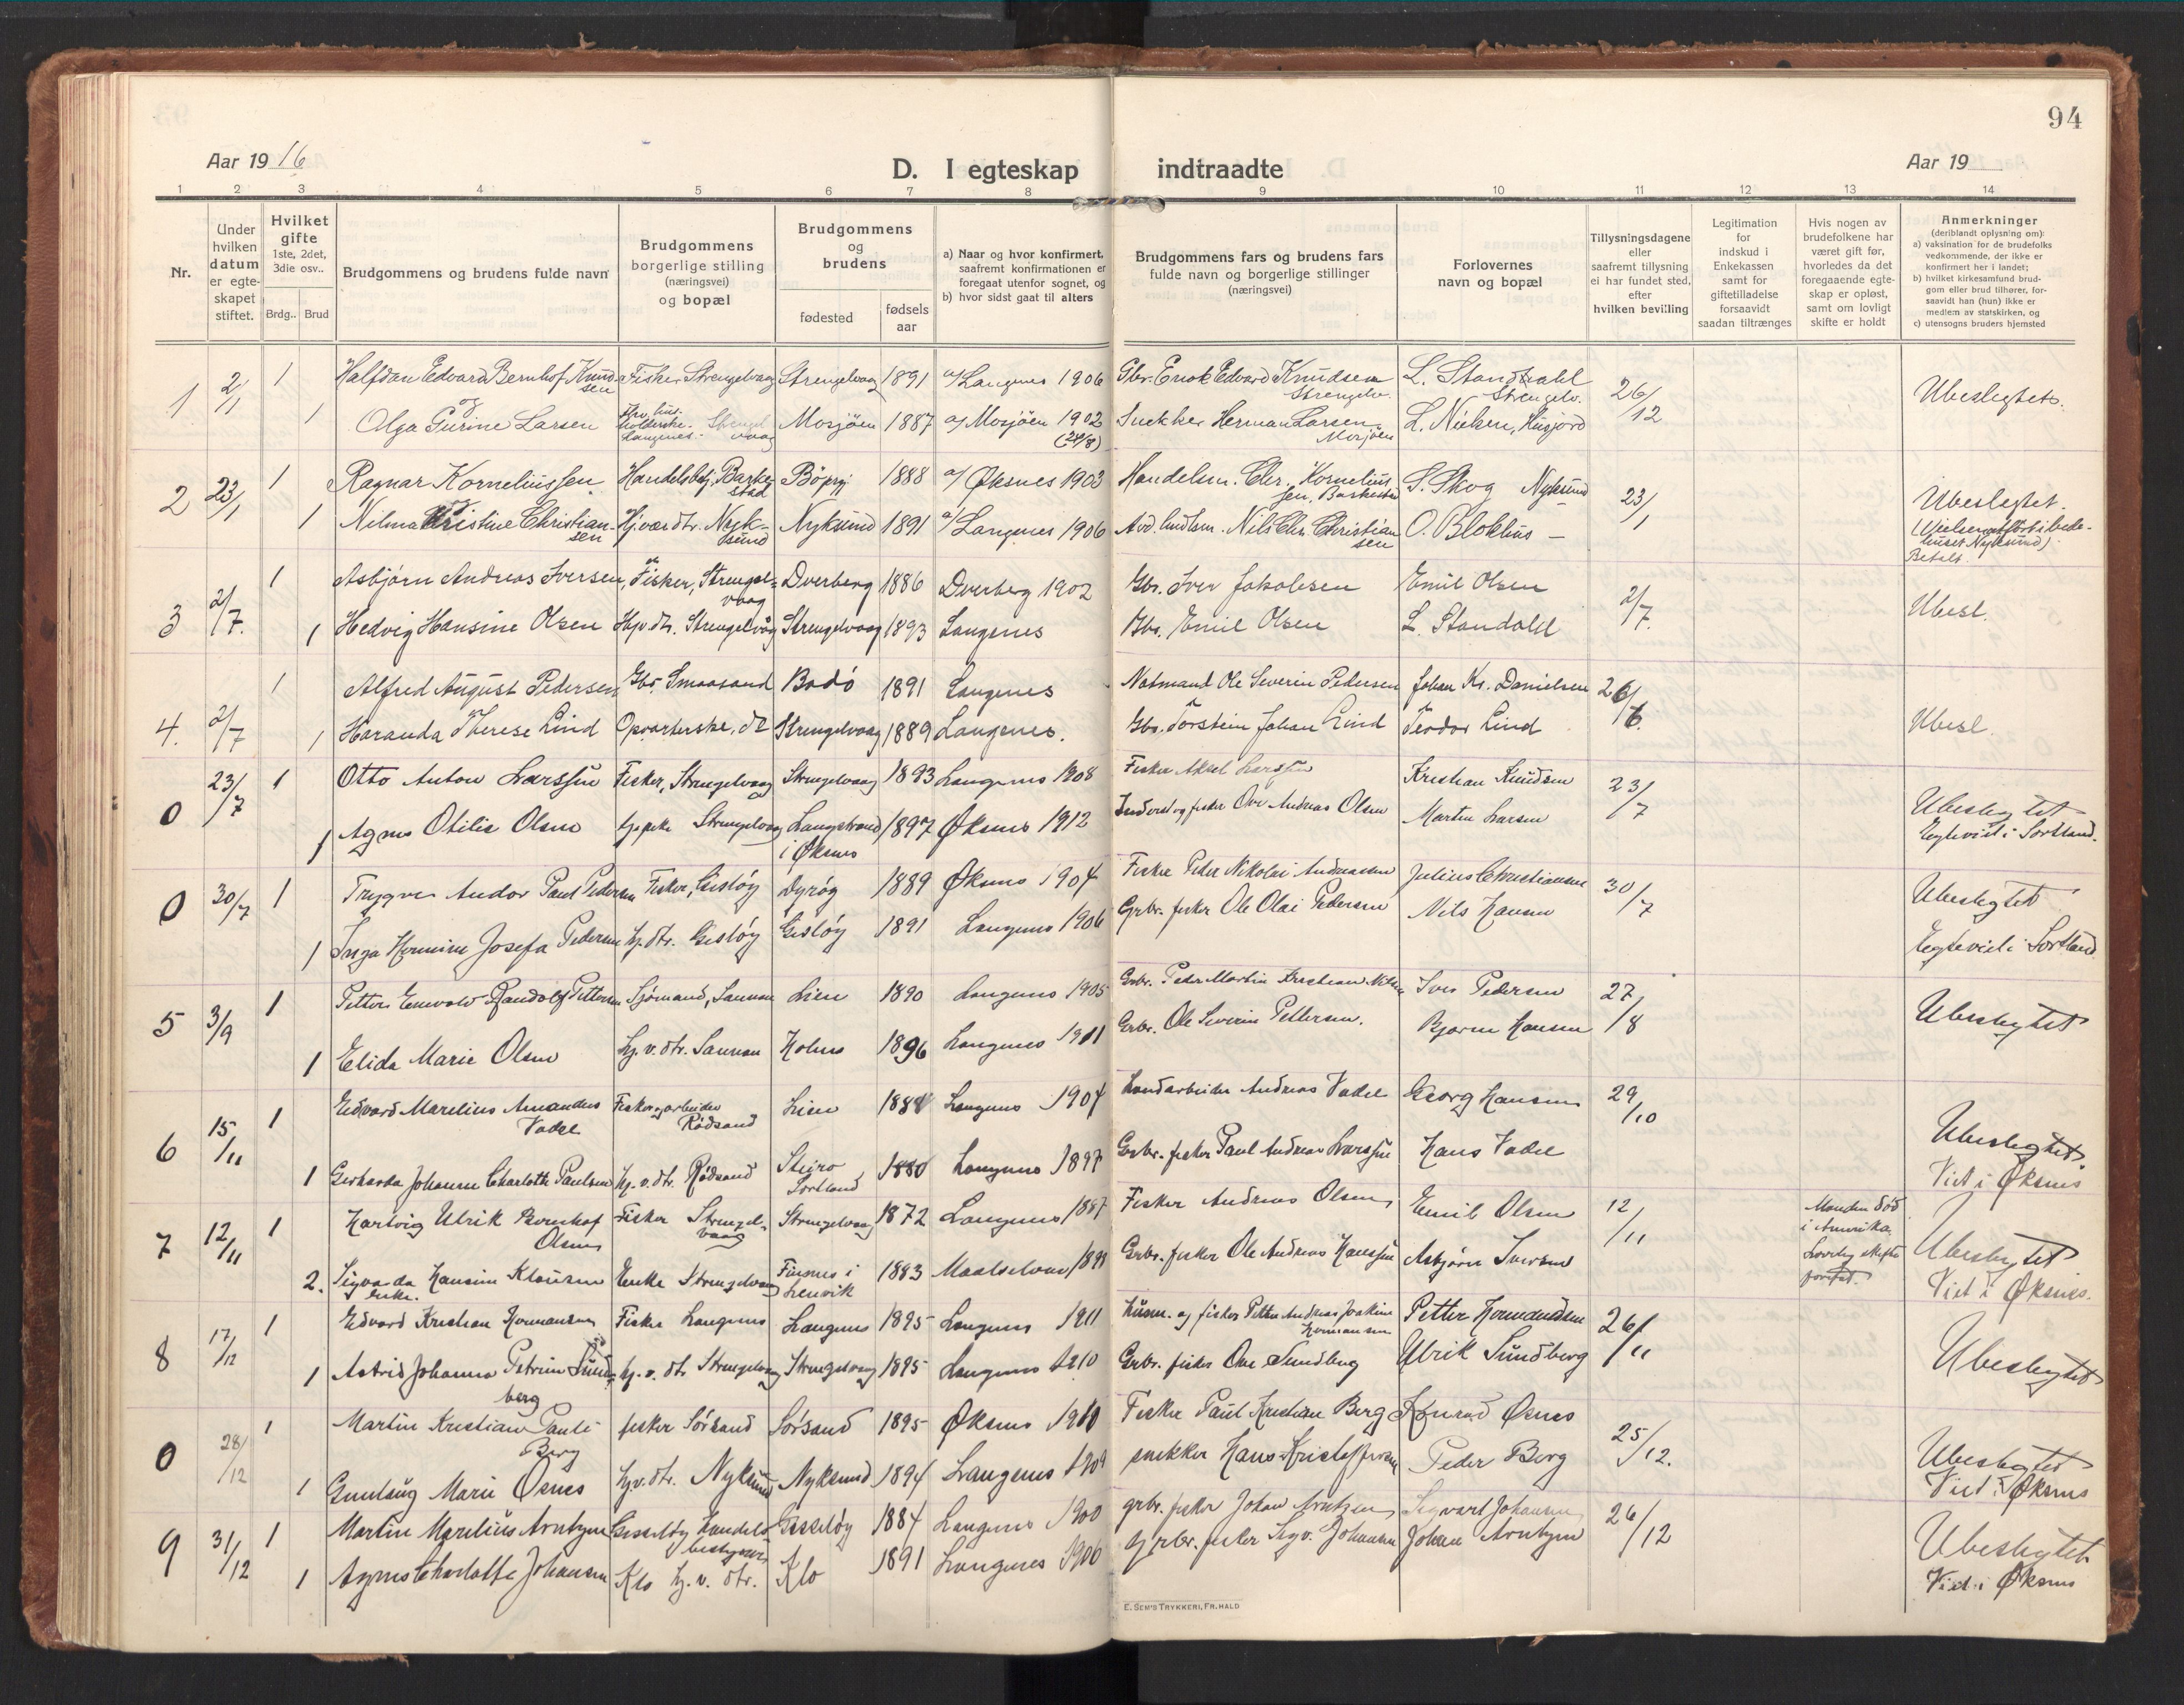 94
Aar 1916
D. I egteskap indtraadte
Aar 19
1 2 3 4 5 6 7 8 9 10 11 12 13 14
Nr.
Under hvilken datum er egte-skapet stiftet.
Hvilket gifte 1ste, 2det, 3die osv..
Brdg.. Brud
Brudgommens og brudens fulde navn
Brudgommens borgerlige stilling (næringsvei) og bopæl
Brudgommens og brudens
fødested
fødsels aar
a) Naar og hvor konfirmert, saafremt konfirmationen er foregaat utenfor sognet, og
b) hvor sidst gaat til alters
Brudgommens fars og brudens fars fulde navn og borgerlige stillinger (næringsvei)
Forlovernes navn og bopæl
Tillysningsdagene eller saafremt tillysning ei har fundet sted, efter hvilken bevilling
Legitimation for indskud i Enkekassen samt for giftetilladelse forsaavidt saadan tiltrænges
Hvis nogen av brudefolkene har været gift før, hvorledes da det foregaaende egte-skap er opløst, samt om lovligt skifte er holdt
Anmerkninger
(deriblandt oplysning om):
a) vaksination for de brudefolks vedkommende, der ikke er konfirmert her i landet;
b) hvilket kirkesamfund brud-gom eller brud tilhører, for-saavidt han (hun) ikke er medlem av statskirken, og
c) utensogns bruders hjemsted
1 2/1 1 Halfdan Edvard Bernhof Knudsen Fisker Strengelvaag Strengelvaag 1891 a/ Langnes 1906 Gbr. Enok Edvard Knudsen Strengelv. L. Standahl Strengelv. 26/12 Ubeslegtet.
og
1 Olga Purine Larsen Langnes. Mosjöen 1887 a/ Mosjöen 1902 (24/8) Snekker Herman Larsen Mosjöen L. Nielsen, Husjord
2 23/1 1 Ragnar Korneliussen Handelsbetj. Barkestad 1888 a/ Øksnes 1903 Handelsm. Chr. Korneliussen, Barkestad S. Skog Nyksund 23/1 Ubeslegtet.
1 Nilma Kristine Christiansen Hj.vær. dtr. Nyksund Nyksund 1891 a/ Langenes 1906 Avd. hndlsm. Nils Chr. Christiansen O. Blokhus
(Vielsen utført i bedehuset Nyksund)
Betalt.
3 2/7. 1 Asbjørn Andreas Iversen, Fisker, Strengelvaag Dverberg 1886 Dverberg 1902 Gbr. Iver Jakobsen Emil Olsen 2/7. Ubesl.
1 Hedvig Hansine Olsen Hjv. dtr. Strengelvåg Strengelvaag 1893 Langenes Gbr. Emil Olsen L. Standahl
4. 2/7 1 Alfred August Pedersen Gbr. Smaasand Bodö 1891 Langenes Notmand Ole Severin Pedersen Johan Kr. Danielsen 26/6. Ubesl.
1 Haranda Therese Lind Opvarterske, Strengelvaag 1889 Langenes. Gbr. Torstein Johan Lind Teodor Lind
0 23/7 1 Otto Anton Larssen Fisker, Strengelvaag Strengelvaag 1893 Langenes 1908 Fisker Aksel Larssen Kristian Knudsen 23/7 Ubeslegtet
1 Agnes Otilie Olsen Strengelvaag Langstrand i Øksnes 1897 Øksnes 1912 Inderst og fisker Ove Andreas Olsen Martin Larsen Egteviet i Sortland.
0 30/7 1 Trygve Andor Paul Pedersen Fisker, Gisløy Dyrøy 1889 Øksnes 1904 Fisker Peder Nikolai Andreassen Julius Christiansen 30/7 Ubeslegtet
1 Inga Hermine Josefa Pedersen hj. dtr. Gisløy Gisløy 1891 Langenes 1906 Grbr. fisker Ole Olai Pedersen Nils Hansen Egteviet i Sortland
5 3/9 1 Petter Enevold Randolf Pettersen Sjømand, Sannan Lien 1890 Langenes 1905 Grbr. Peder Martin Kristian Nilsen Iver Pedersen 27/8 Ubeslegtet
1 Elida Marie Olsen hj. v. dtr. Sannan Holmen 1896 Langenes 1911 Grbr. Ole Severin Pettersen. Bjarne Hansen
6 15/11 1 Edvard Marelius Amandus Vadel Fisker og arbeider Rødsand Lien 1884 Langenes 1904 Landarbeider Andreas Vadel Georg Hansen 29/10 Ubeslegtet.
1 Gerharda Johanne Charlotte Paulsen hj. v. dtr. Rødsand Steiro Sortland 1880 Langenes 1897 Grbr. fisker Paul Andreas Larssen Hans Vadel Viet i Øksnes
7 12/11 1 Hartvig Ulrik Bernhof Olsen Fisker Strengelvaag Strengelvaag 1872 Langenes 1887 Fisker Andreas Olsen Emil Olsen 12/11 Manden død i Amerika Lovlig skifte Ubeslegtet
2. Sigvarda Hansine Klausen enke. Enke Strengelvaag Finnes i Lenvik 1883 Maalselven 1898 Grbr. fisker Ole Andreas Hanssen Asbjørn Iversen Viet i Øksnes.
8 17/12 1 Edvard Kristian Hermansen Fisker Langenes Langenes 1895 Langenes 1911 Husm. og fisker Petter Andreas Joakim Hermansen Petter Hermansen 26/11 Ubeslegtet
1 Astrid Johanna Petrine Sundberg hj. v. dtr. Strengelvaag Strengelvaag 1895 Langenes 1910 Grbr. fisker Ove Sundberg Ulrik Sundberg
0 28/12 1 Martin Kristian Pauli Berg fisker Sørsand Sørsand 1895 Øksnes 1910 Fisker Paul Kristian Berg Konrad Osnes 25/12. Ubeslegtet
1 Gunlaug Marie Osnes hj.v. dtr. Nyksund Nyksund 1894 Langenes 1909 snekker Hans Kristoffersen Peder Berg Viet i Øksnes
9 31/12 1 Martin Marelius Arntzen Gisseløy Handelsbestyrer Gisseløy 1884 Langenes 1900 grbr. fisker Johan Arntzen Sigvart Johansen 26/12 Ubeslegtet
1 Agnes Charlotte Johansen Klo hj. v. dtr. Klo 1891 Langenes 1906 Grbr. fisker Sigv. Johansen Johan Arntzen Viet i Øksnes
E. SEM'S TRYKKERI, FR.HALD